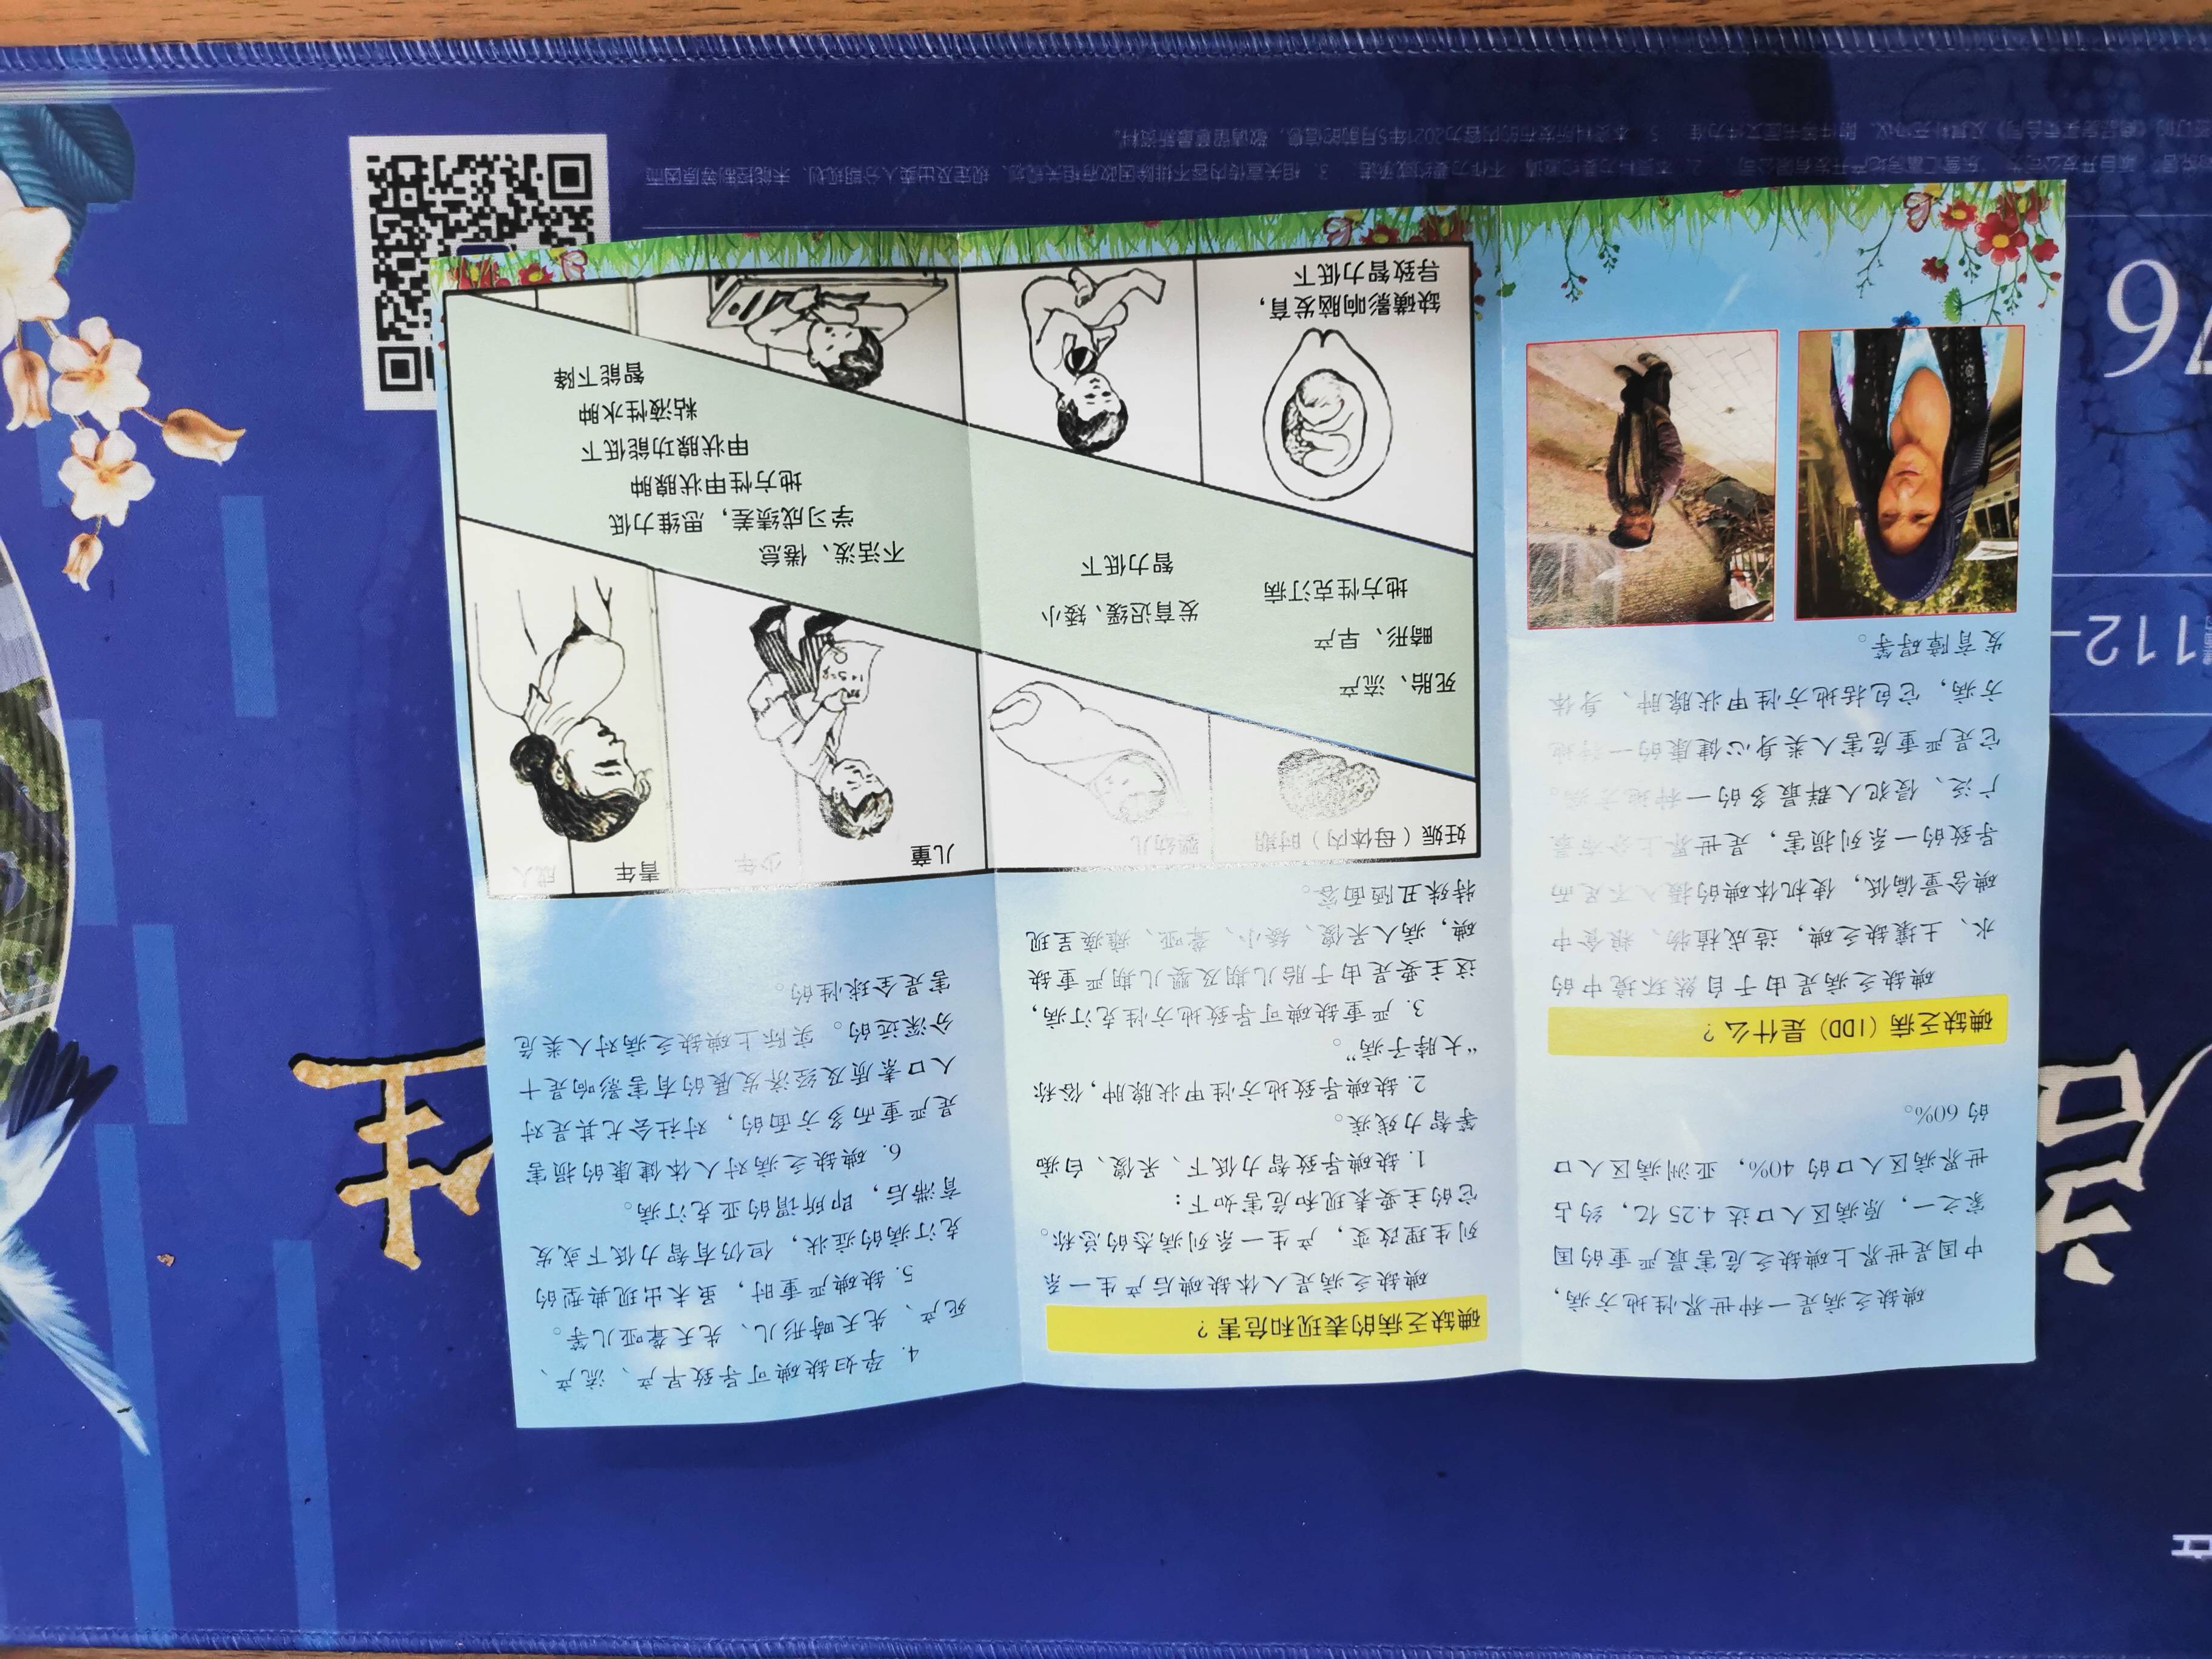 碘缺乏病是一种世界性地方病，
中国是世界上碘缺乏危害最严重的国
家之一，原病区人口达 4.25 亿，约占
世界病区人口的 40%，亚洲病区人口
的 60%。
碘缺乏病（IDD）是什么？
碘缺乏病是由于自然环境中的
水、土壤缺乏碘，造成植物、粮食中
碘含量偏低，使机体碘的摄入不足而
导致的一系列损害，是世界上分布最
广泛、侵犯人群最多的一种地方病。
它是严重危害人类身心健康的一种地
方病，它包括地方性甲状腺肿、身体
发育障碍等。
碘缺乏病的表现和危害？
碘缺乏病是人体缺碘后产生一系
列生理改变，产生一系列病态的总称。
它的主要表现和危害如下：
1. 缺碘导致智力低下、呆傻、白痴
等智力残疾。
2. 缺碘导致地方性甲状腺肿，俗称
“大脖子病”。
3. 严重缺碘可导致地方性克汀病，
这主要是由于胎儿期及婴儿期严重缺
碘，病人呆傻、矮小、聋哑、瘫痪呈现
特殊丑陋面容。
4. 孕妇缺碘可导致早产、流产、
死产、先天畸形儿、先天聋哑儿等。
5. 缺碘严重时，虽未出现典型的
克汀病的症状，但仍有智力低下或发
育滞后，即所谓的亚克汀病。
6. 碘缺乏病对人体健康的损害
是严重而多方面的，对社会尤其是对
人口素质及经济发展的有害影响是十
分深远的。实际上碘缺乏病对人类危
害是全球性的。
妊娠（母体内）时期
婴幼儿
儿童
少年
青年
成人
死胎、流产
畸形、早产
地方性克汀病
发育迟缓、矮小
智力低下
不活泼、倦怠
学习成绩差，思维力低
地方性甲状腺肿
甲状腺功能低下
粘液性水肿
智能下降
缺碘影响脑发育，
导致智力低下
112
76